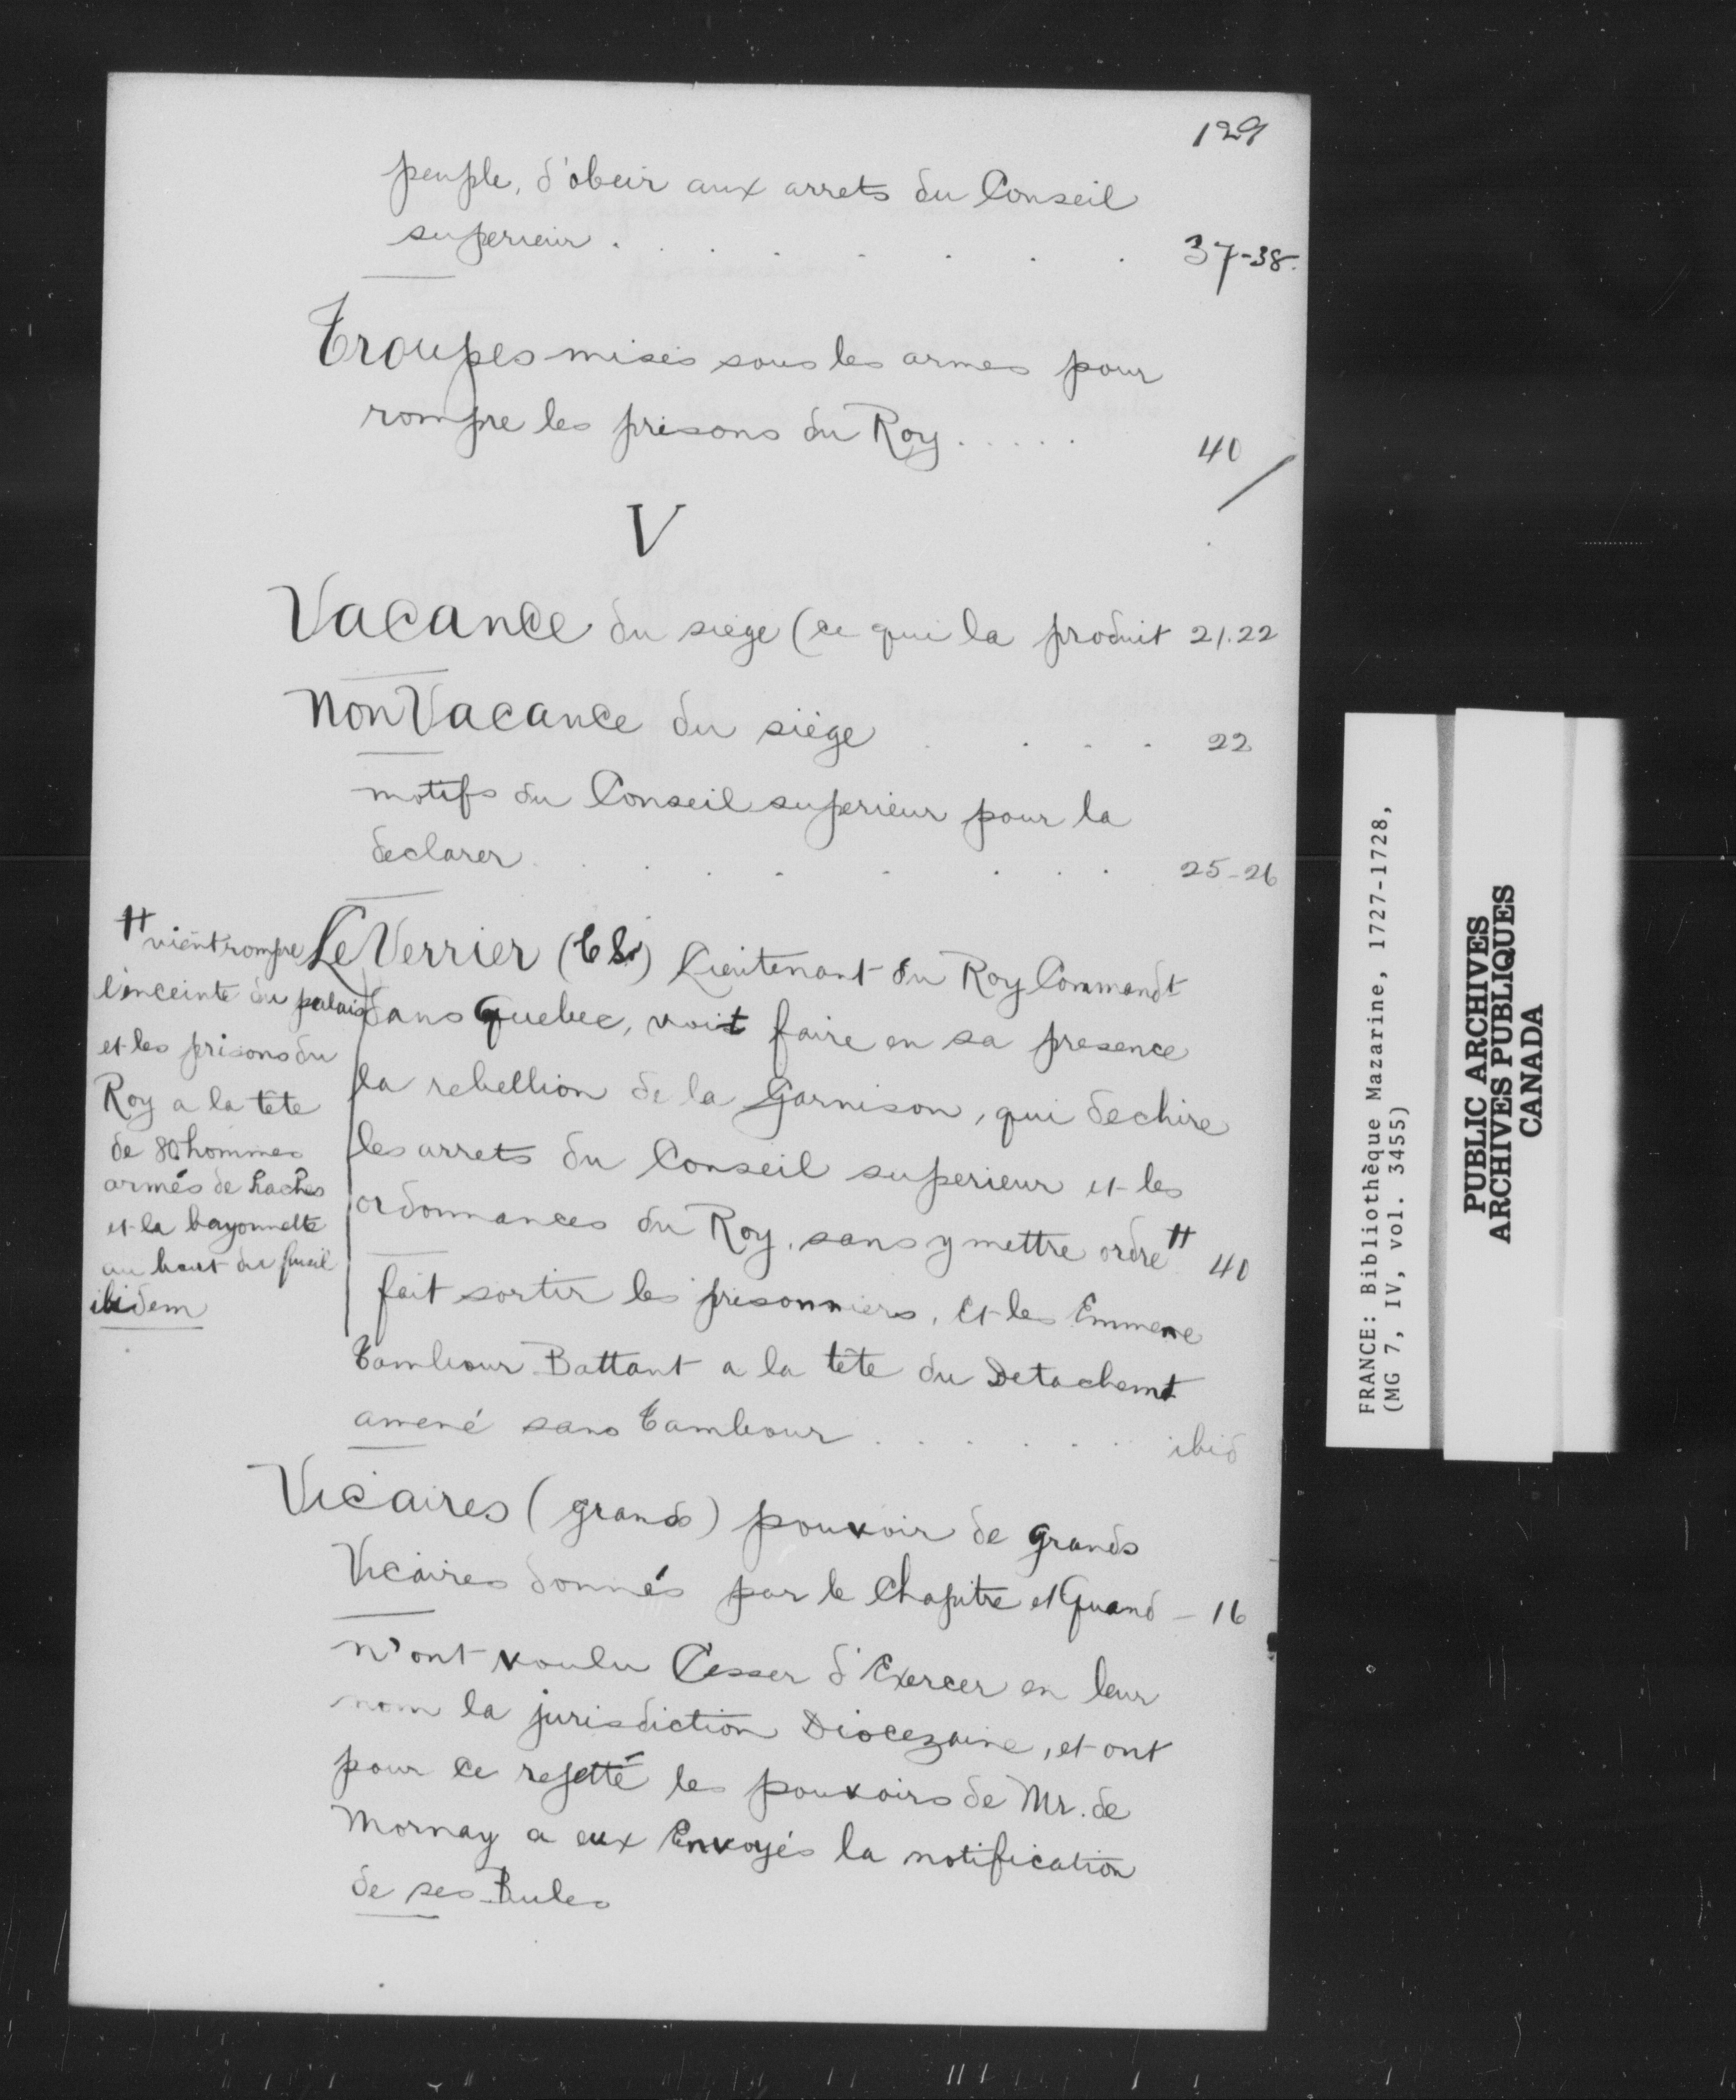 129
peuple, d'obeir aux arrets du Conseil
superieur . . . . . . 37-38.
Troupes mises sous les armes pour
rompre les prisons du Roy . . . . . 40
V
Vacance du siege (ce qui la produit 21.22
Non Vacance du siège . . . . 22
motifs du Conseil superieur pour la
declarer . . . . . . . 25-26
Le Verrier (le Sr) Lieutenant du Roy Commandt
dans Quebec, voit faire en sa presence
la rebellion de la Garnison, qui dechire
les arrets du Conseil superieur et les
ordonnances du Roy, sans y mettre ordre # 40
fait sortir les prisonniers, Et les Emmene
Tambour Battant a la tête du Detachemt
amené sans Tambour . . . . . . ibid
# vient rompre
l'enceinte du palais
et les prisons du
Roy a la tête
de 80 hommes
armés de haches
et la bayonnette
au bout du fusil
ibidem
Vicaires (grands) pouvoir de grands
Vicaires donnés par le Chapitre et Quand - 16
n'ont voulu Cesser d'Exercer en leur
nom la jurisdiction Diocezaine, et ont
pour ce rejetté les pouvoirs de Mr. de
Mornay a eux Envoyés la notification
de ses Bules
FRANCE: Bibliothèque Mazarine, 1727-1728,
(MG 7, IV, vol. 3455)
PUBLIC ARCHIVES
ARCHIVES PUBLIQUES
CANADA